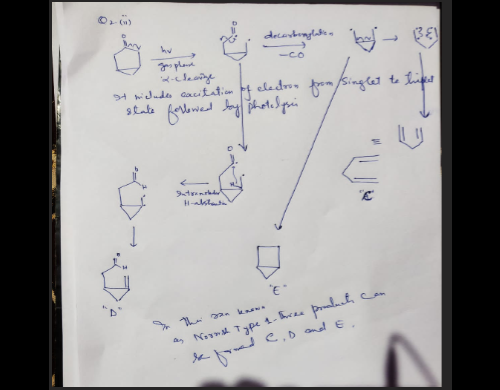 2-(ii)
O
O
hν
gas phase
α-cleavage
decarboxylation
-CO
It includes excitation of electron from singlet to triplet
state followed by photolysis
≡
"C"
O
H
Intramolecular
H-abstraction
H
O
H
"D"
"E"
In this rxn known
as Norrish Type 1 three products can
be formed C, D and E.